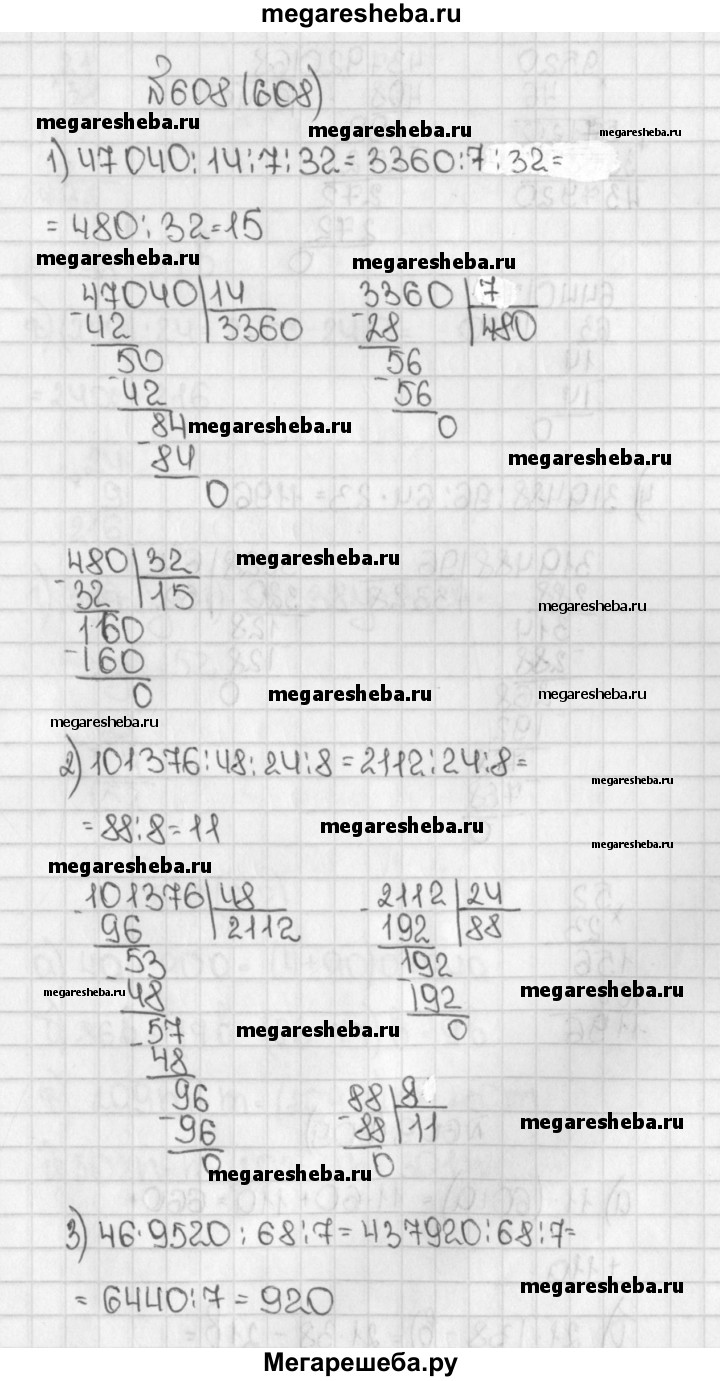 megaresheba.ru
№608 (608)
megaresheba.ru megaresheba.ru megaresheba.ru
1) 47040:14:7:32=3360:7:32=
=480:32=15
megaresheba.ru megaresheba.ru
47040|14 3360|7
-42 3360 -28 480
50 56
-42 -56
84 0
megaresheba.ru
-84
megaresheba.ru
0
480|32
megaresheba.ru
-32 15
megaresheba.ru
160
-160
0
megaresheba.ru megaresheba.ru
megaresheba.ru
2) 101376:48:24:8=2112:24:8=
megaresheba.ru
=88:8=11
megaresheba.ru
megaresheba.ru
megaresheba.ru
-101376|48 -2112|24
96 2112 192 88
-53 192
48 -192
megaresheba.ru megaresheba.ru
-57 0
megaresheba.ru
48
96 88|8
-96 -88 11
megaresheba.ru
0 0
megaresheba.ru
3) 46·9520:68:7=437920:68:7=
megaresheba.ru
=6440:7=920
Мегарешеба.ру